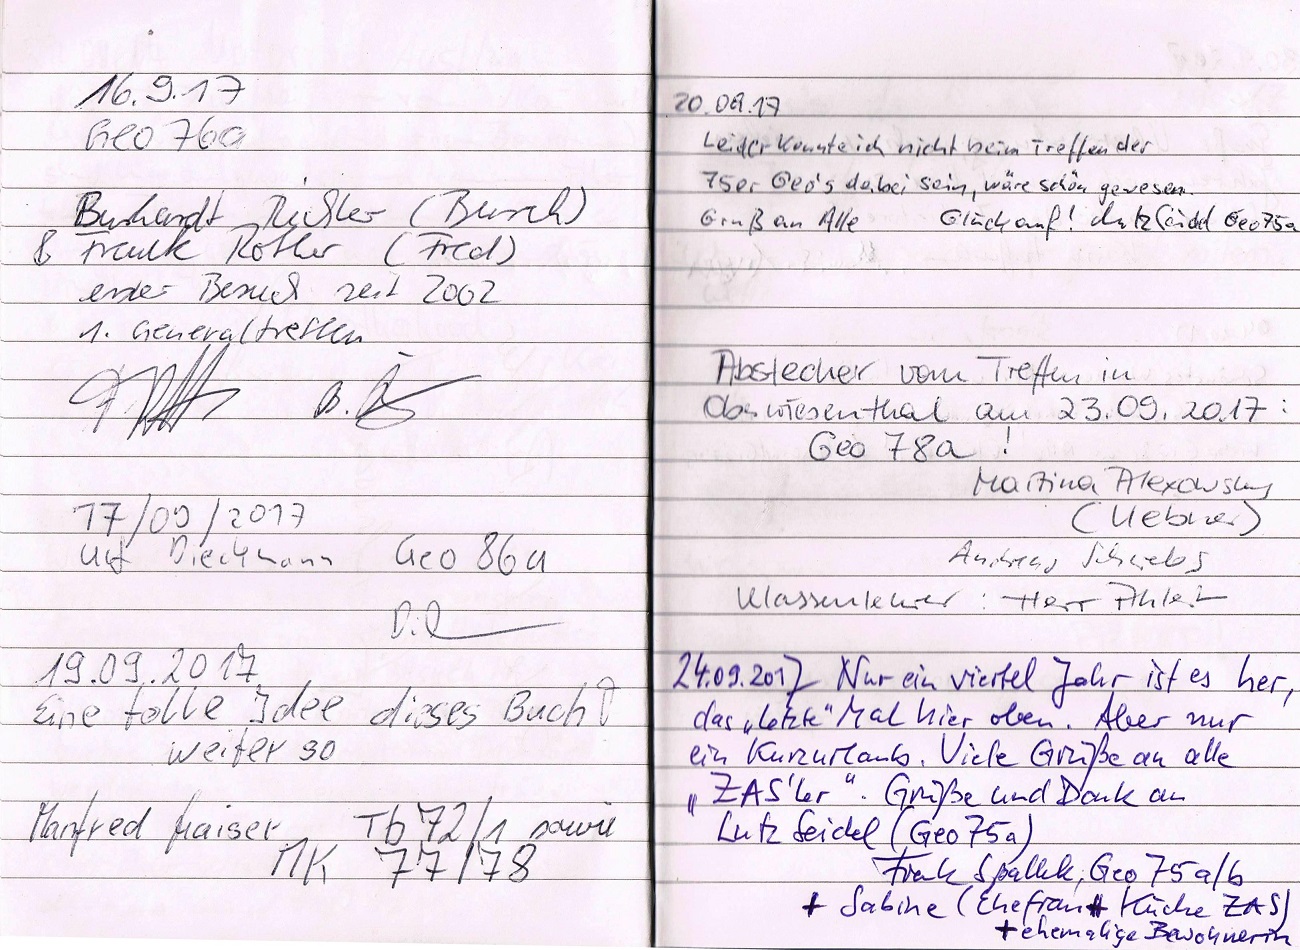 16.9.17
Geo 76a
Burhardt (Bursch)
& Frank Rother (Fred)
erster Besuch seit 2002
1. Generaltreffen
B.
17/09/2017
Ulf Dieckmann Geo 86a
19.09.2017
Eine tolle Idee dieses Buch!
weiter so
Manfred Maiser Tb 72/1 sowie
MK 77/78
20.09.17
Leider konnte ich nicht beim Treffen der
75er Geo's dabei sein, wäre schön gewesen.
Gruß an Alle Glück auf! Lutz Seidel Geo75a
Abstecher vom Treffen in
Oberwiesenthal am 23.09.2017:
Geo 78a !
Martina Alexowsky
(Uebner)
Andreas
Klassenlehrer : Herr
24.09.2017 Nur ein viertel Jahr ist es her,
das „letzte" Mal hier oben. Aber nur
ein Kurzurlaub. Viele Grüße an alle
„ZAS'ler". Grüße und Dank an
Lutz Seidel (Geo75a)
Frank Spallek, Geo 75a/b
+ Sabine (Ehefrau + Küche ZAS)
+ ehemalige Bewohnerin